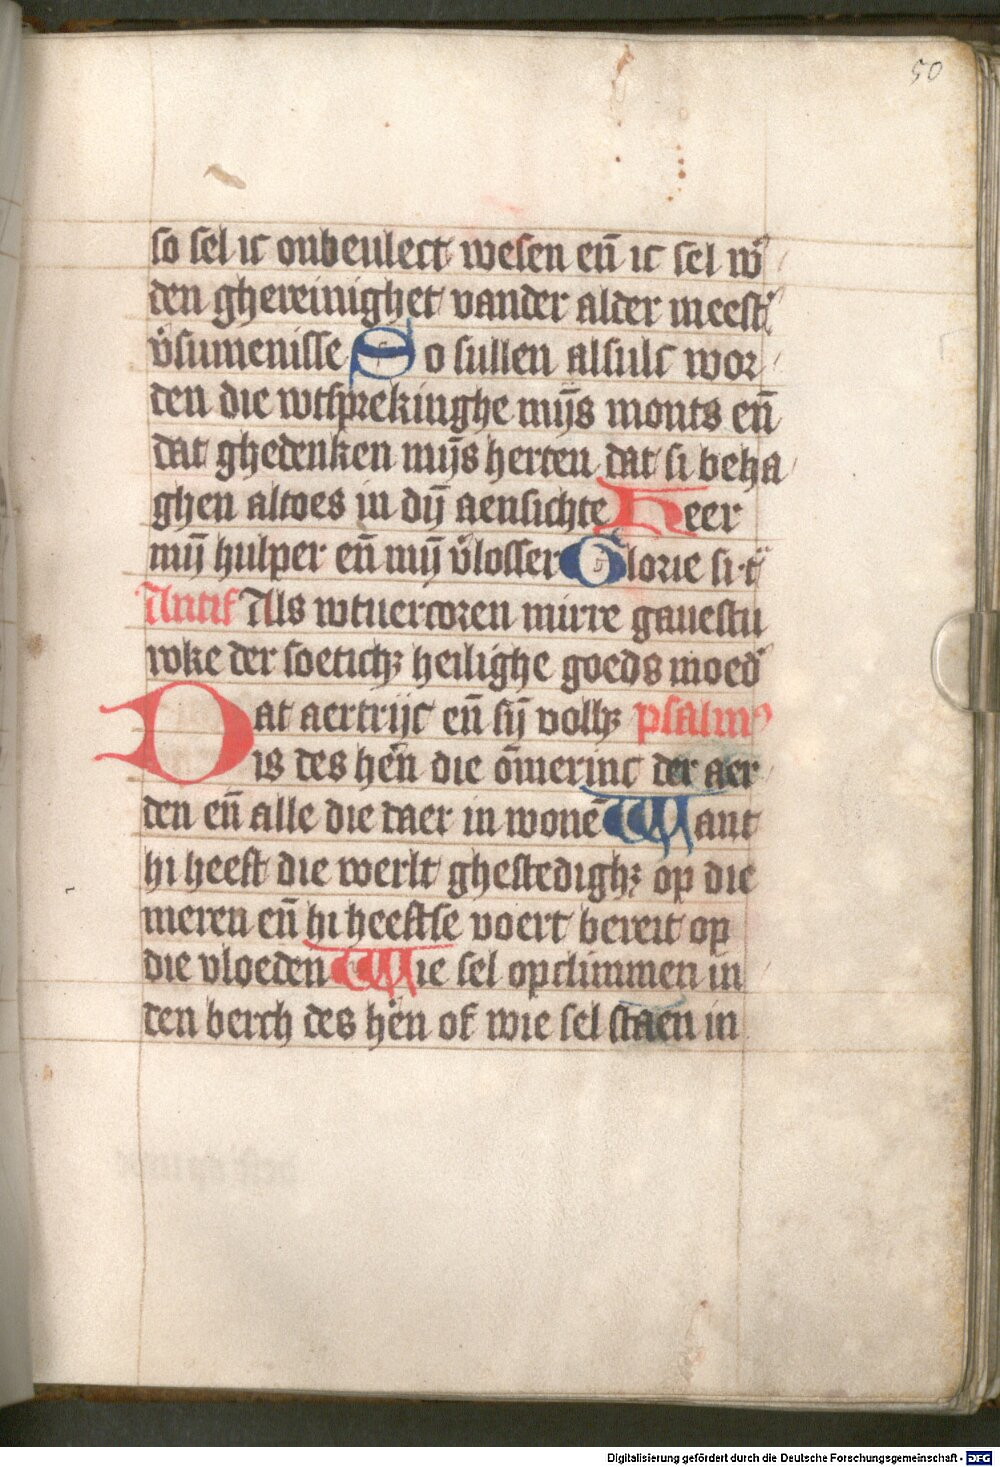 50
so sel ic onbeulect wesen en̄ ic sel w̉
den ghereinighet vander alder meest̉
v̉sumenisse So sullen alsulc wor
den die wtsprekinghe mijs monts en̄
dat ghedenken mijs herten dat si beha
ghen altoes in dij̄ aensichte Heer
mij̄ hulper en̄ mij̄ v̉losser Glorie si t
Antif Als wtuercoren mirre gauestu
roke der soeticħꝫ heilighe goeds moed̉
Dat aertrijc en̄ sij̄ vollꝫ psalmꝰ
is des hēn die ōmerinc der aer
den en̄ alle die daer in wonē Want
hi heeft die werlt ghestedighꝫ op die
meren en̄ hi heeftse voert bereit op
die vloeden Wie sel opclimmen in
den berch des hēn of wie sel staen in
Digitalisierung gefördert durch die Deutsche Forschungsgemeinschaft - DFG